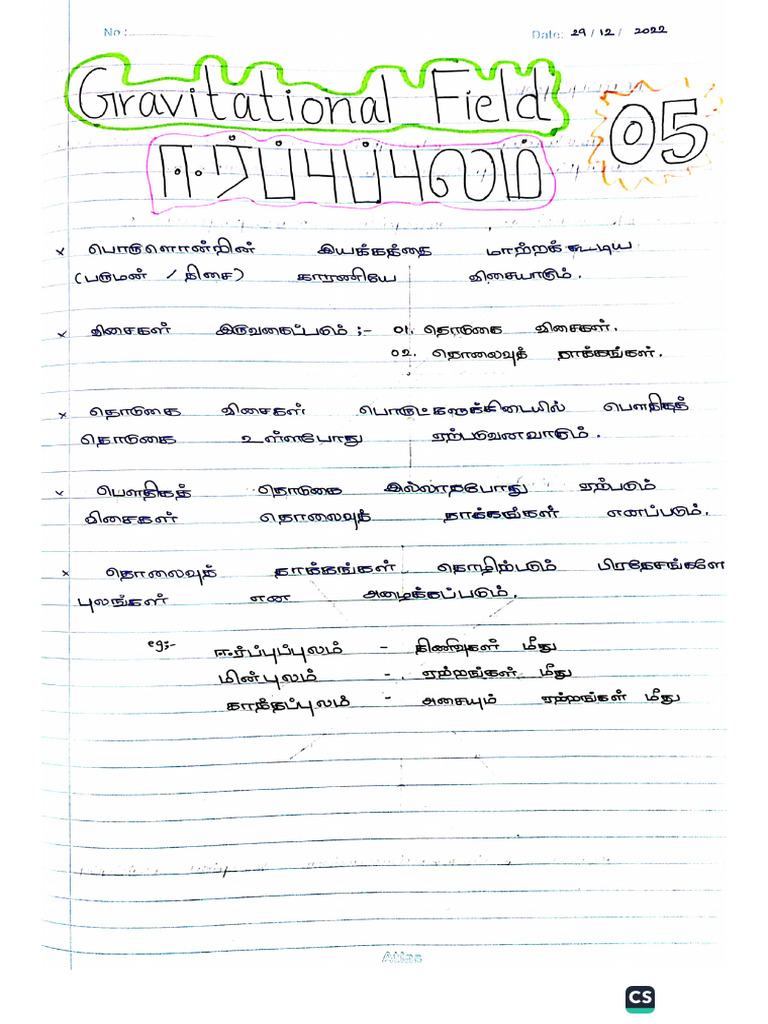 No :
Date: 29 / 12 / 2022
Gravitational Field
ஈர்ப்புப்புலம்
05
× பொருளொன்றின் இயக்கத்தை மாற்றக்கூடிய
(பருமன் / திசை) காரணியே விசையாகும்.
× விசைகள் இருவகைப்படும் ;- 01. தொடுகை விசைகள்.
02. தொலைவுத் தாக்கங்கள்.
× தொடுகை விசைகள் பொருட்களுக்கிடையில் பௌதிகத்
தொடுகை உள்ளபோது ஏற்படுவனவாகும்.
× பௌதிகத் தொடுகை அல்லாதபோது ஏற்படும்
விசைகள் தொலைவுத் தாக்கங்கள் எனப்படும்.
× தொலைவுத் தாக்கங்கள் தொழிற்படும் பிரதேசங்களே
புலங்கள் என அழைக்கப்படும்.
eg;- ஈர்ப்புப்புலம் - திணிவுகள் மீது
மின்புலம் - ஏற்றங்கள் மீது
காந்தப்புலம் - அசையும் ஏற்றங்கள் மீது
Atlas
CS